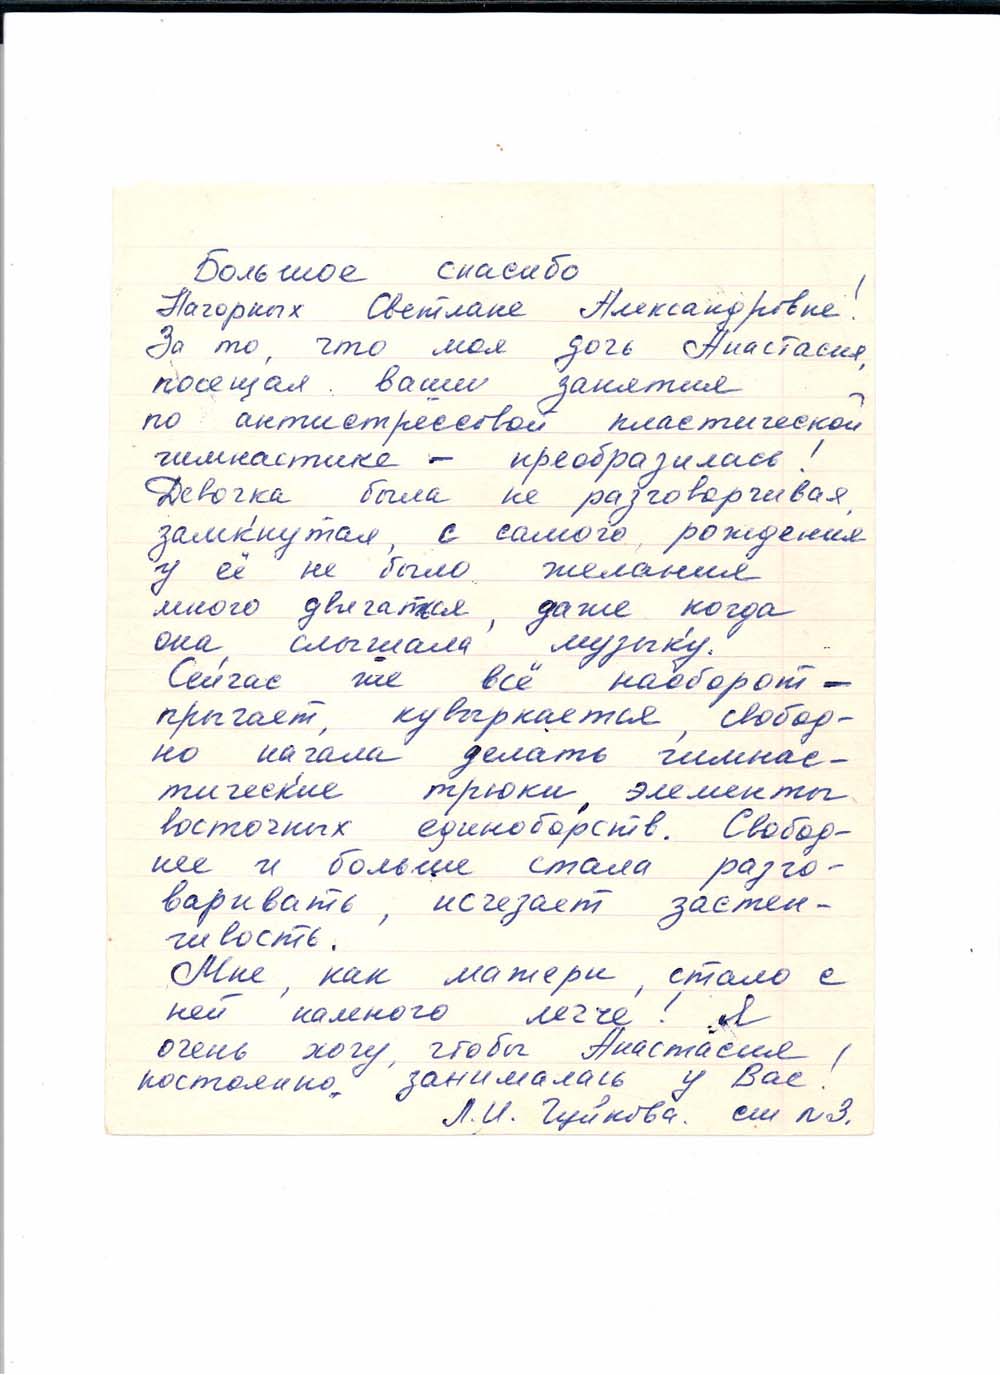 Большое спасибо
Нагорных Светлане Александровне!
За то, что моя дочь Анастасия,
посещая ваши занятия
по антистрессовой пластической
гимнастике – преобразилась!
Девочка была не разговорчивая,
замкнутая, с самого рождения
у её не было желания
много двигаться, даже когда
она слышала музыку.
Сейчас же всё наоборот –
прыгает, кувыркается, свобод-
но начала делать гимнас-
тические трюки, элементы
восточных единоборств. Свобод-
нее и больше стала разго-
варивать, исчезает застен-
чивость.
Мне, как матери, стало с
ней намного легче! Я
очень хочу, чтобы Анастасия
постоянно занималась у Вас!
Л.И. Чуйкова. сш №3.